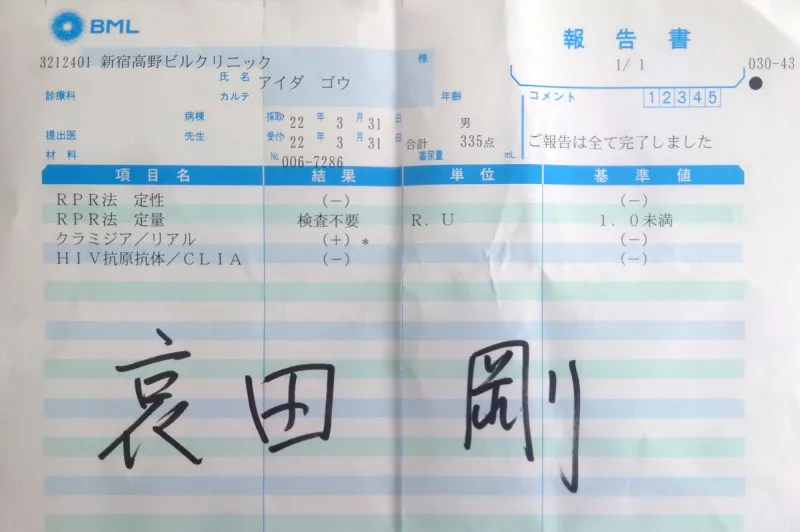 BML
報告書
3212401 新宿高野ビルクリニック
様
1/ 1
030-43
氏名
カルテ
アイダ ゴウ
診療科
年齢
コメント
1 2 3 4 5
病棟
採取 22 年 3 月 31 日
男
提出医
先生
受付 22 年 3 月 31 日
合計 335点
ご報告は全て完了しました
材料
№ 006-7286
蓄尿量 mL
項目名 結果 単位 基準値
RPR法 定性 (-) (-)
RPR法 定量 検査不要 R.U 1.0未満
クラミジア/リアル (+) * (-)
HIV抗原抗体/CLIA (-) (-)
哀田 剛